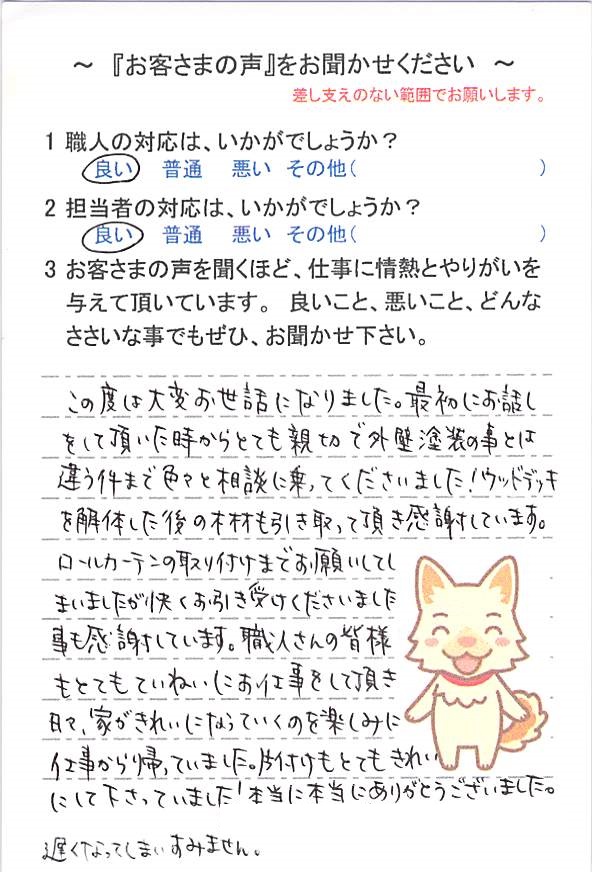 ～ 『お客さまの声』をお聞かせください ～
差し支えのない範囲でお願いします。
1 職人の対応は、いかがでしょうか？
良い 普通 悪い その他( )
2 担当者の対応は、いかがでしょうか？
良い 普通 悪い その他( )
3 お客さまの声を聞くほど、仕事に情熱とやりがいを
与えて頂いています。 良いこと、悪いこと、どんな
ささいな事でもぜひ、お聞かせ下さい。
この度は大変お世話になりました。最初にお話し
をして頂いた時からとても親切で外壁塗装の事とは
違う件まで色々と相談に乗ってくださいました！ウッドデッキ
を解体した後の木材も引き取って頂き感謝しています。
ロールカーテンの取り付けまでお願いしてし
まいましたが快くお引き受けくださいました
事も感謝しています。職人さんの皆様
もとてもていねいにお仕事をして頂き
日々、家がきれいになっていくのを楽しみに
仕事から帰っていました。片付けもとてもきれい
にして下さっていました！本当に本当にありがとうございました。
遅くなってしまいすみません。